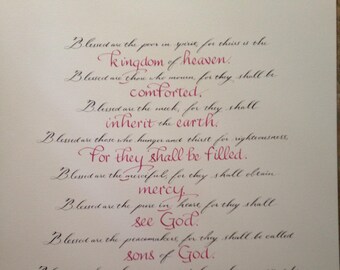 Blessed are the poor in spirit, for theirs is the
kingdom of heaven.
Blessed are those who mourn, for they shall be
comforted.
Blessed are the meek, for they shall
inherit the earth.
Blessed are those who hunger and thirst for righteousness,
for they shall be filled.
Blessed are the merciful, for they shall obtain
mercy.
Blessed are the pure in heart, for they shall
see God.
Blessed are the peacemakers, for they shall be called
sons of God.